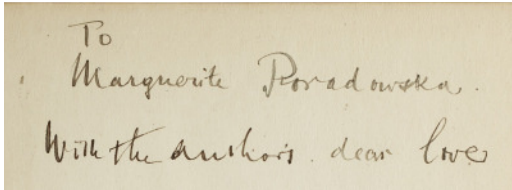 To
Marguerite Poradowska.
With the author's dear love